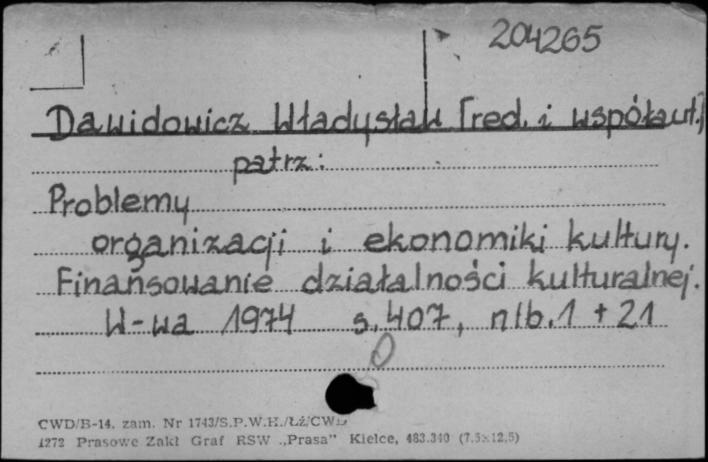 204265
Dawidowicz Władysław [red. i współaut.]
patrz:
Problemy
organizacji i ekonomiki kultury.
Finansowanie działalności kulturalnej.
W-wa 1974 s. 407, nlb. 1 + 21
0
CWD/B-14. zam. Nr 1743/S.P.W.H./ŁŹ/CWD
1272 Prasowe Zakł Graf RSW „Prasa” Kielce, 483.340 (7,5×12,5)